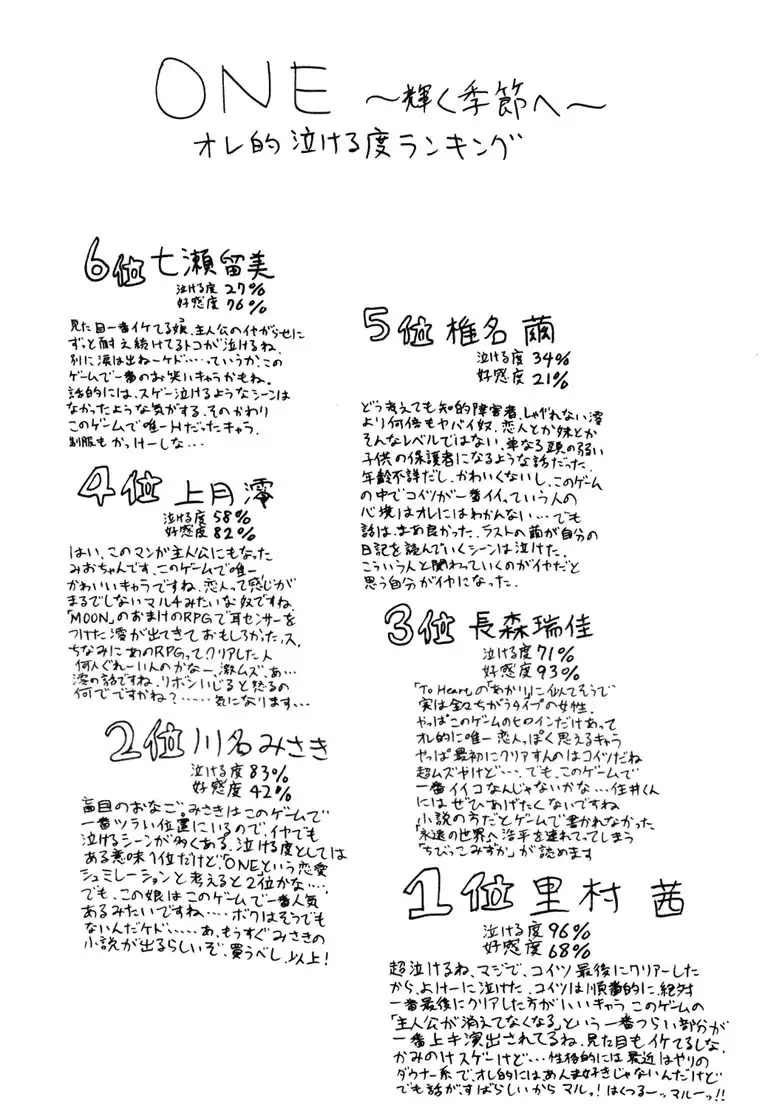 ONE ～輝く季節へ～
オレ的泣ける度ランキング
6位 七瀬留美
泣ける度 27%
好感度 76%
見た目一番イケてる娘、主人公のイヤがらせに
ずっと耐え続けてるトコが泣けるね、
別に涙は出ねーケド……っていうか、この
ゲームで一番のお笑いキャラかもね。
話的には、スゲー泣けるようなシーンは
なかったような気がする、そのかわり
このゲームで唯一Hだったキャラ、
制服もかっけーしな…
5位 椎名 繭
泣ける度 34%
好感度 21%
どう考えても知的障害者、しゃべれない澪
より何倍もヤバイ奴、恋人とか妹とか
そんなレベルではない、単なる頭の弱い
子供の保護者になるような話だった、
年齢不詳だし、かわいくないし、このゲーム
の中でコイツが一番イイっていう人の
心境はオレにはわかんない…でも
話は、まあ良かった、ラストへ繭が自分の
日記を読んでいくシーンは泣けた、
こういう人と関わっていくのがイヤだと
思う自分がイヤになった、
4位 上月澪
泣ける度 58%
好感度 82%
はい、このマンが主人公にもなった
みおちゃんです、このゲームで唯一
かわいいキャラですね、恋人って感じが
まるでしないマルチみたいな奴ですね、
「MOON」のおまけのRPGで耳センサーを
つけた澪が出てきておもしろかったっス、
ちなみにあのRPGってクリアした人
何人ぐれーいんのかなー、激ムズ、あ…
澪の話ですね、リボンいじると怒るの
何でですかね？……気になります…
3位 長森瑞佳
泣ける度 71%
好感度 93%
「To Heart」の「あかり」に似てそうで
実は全くちがうタイプの女性、
やっぱこのゲームのヒロインだけあって
オレ的に唯一恋人っぽく思えるキャラ
やっぱ最初にクリアすんのはコイツだね
超ムズヤけど…、でも、このゲームで
一番イイコなんじゃないかな…住井くん
にはぜひあげたくないですね
小説の方だとゲームで書かれなかった
「永遠の世界へ浩平を連れてってしまう
「ちびっこみずか」が読めます
2位 川名みさき
泣ける度 83%
好感度 42%
盲目のおなご、みさきはこのゲームで
一番ツラい位置にいるので、イヤでも
泣けるシーンが多くある、泣ける度としては
ある意味1位だけど、ONEという恋愛
シュミレーションと考えると2位かな…、
でも、この娘はこのゲームで一番人気
あるみたいですね……ボクはそうでも
ないんだケド……あ、もうすぐみさきの
小説が出るらしいぞ、買うべし、以上！
1位 里村 茜
泣ける度 96%
好感度 68%
超泣けるね、マジで、コイツ最後にクリアーした
から、よけーに泣けた、コイツは順番的に、絶対
一番最後にクリアした方がいいキャラ このゲームの
「主人公が消えてなくなる」という一番つらい部分が
一番上手演出されてるね、見た目もイケてるしな、
かみのけスゲーけど…性格的には最近はやりの
ダウナー系で、オレ的にはあんま好きじゃないんだけど
でも話が、すばらしいから マルッ！はくつるーッマルーッ!!